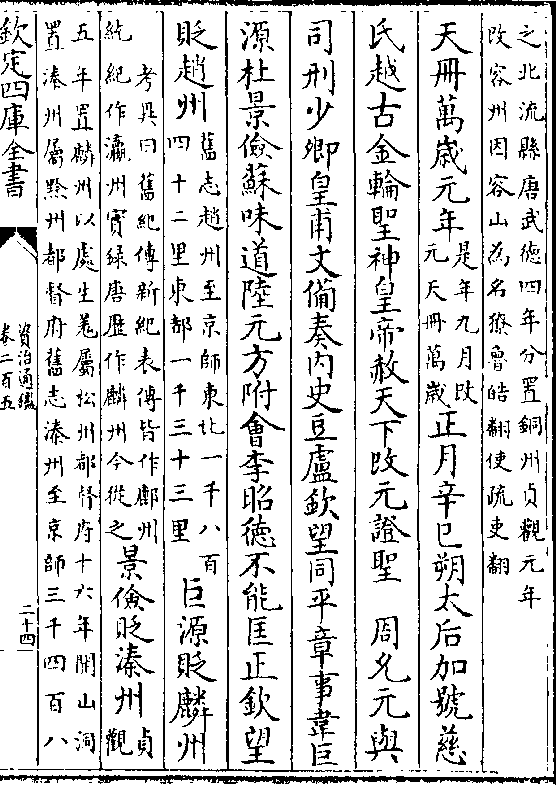 之北流縣唐武德四年分置銅州貞觀元年
改容州因容山為名獠魯皓翻使疏吏翻
天冊萬歲元年
是年九月改
元天冊萬歲
正月辛巳朔太后加號慈
氏越古金輪聖神皇帝赦天下改元證聖 周允元與
司刑少卿皇甫文備奏内史豆盧欽望同平章事韋巨
源杜景儉蘇味道陸元方附會李昭德不能匡正欽望
貶趙州
舊志趙州至京師東北一千八百
四十二里東都一千三十三里
巨源貶麟州
考異曰舊紀傳新紀表傳皆作鄜州
統紀作瀛州實録唐歷作麟州今從之
景儉貶溱州
貞觀
五年置麟州以處生羌屬松州都督府十六年開山洞
置溱州屬黔州都督府舊志溱州至京師三千四百八
欽定四庫全書
資治通鑑
卷二百五
二十四